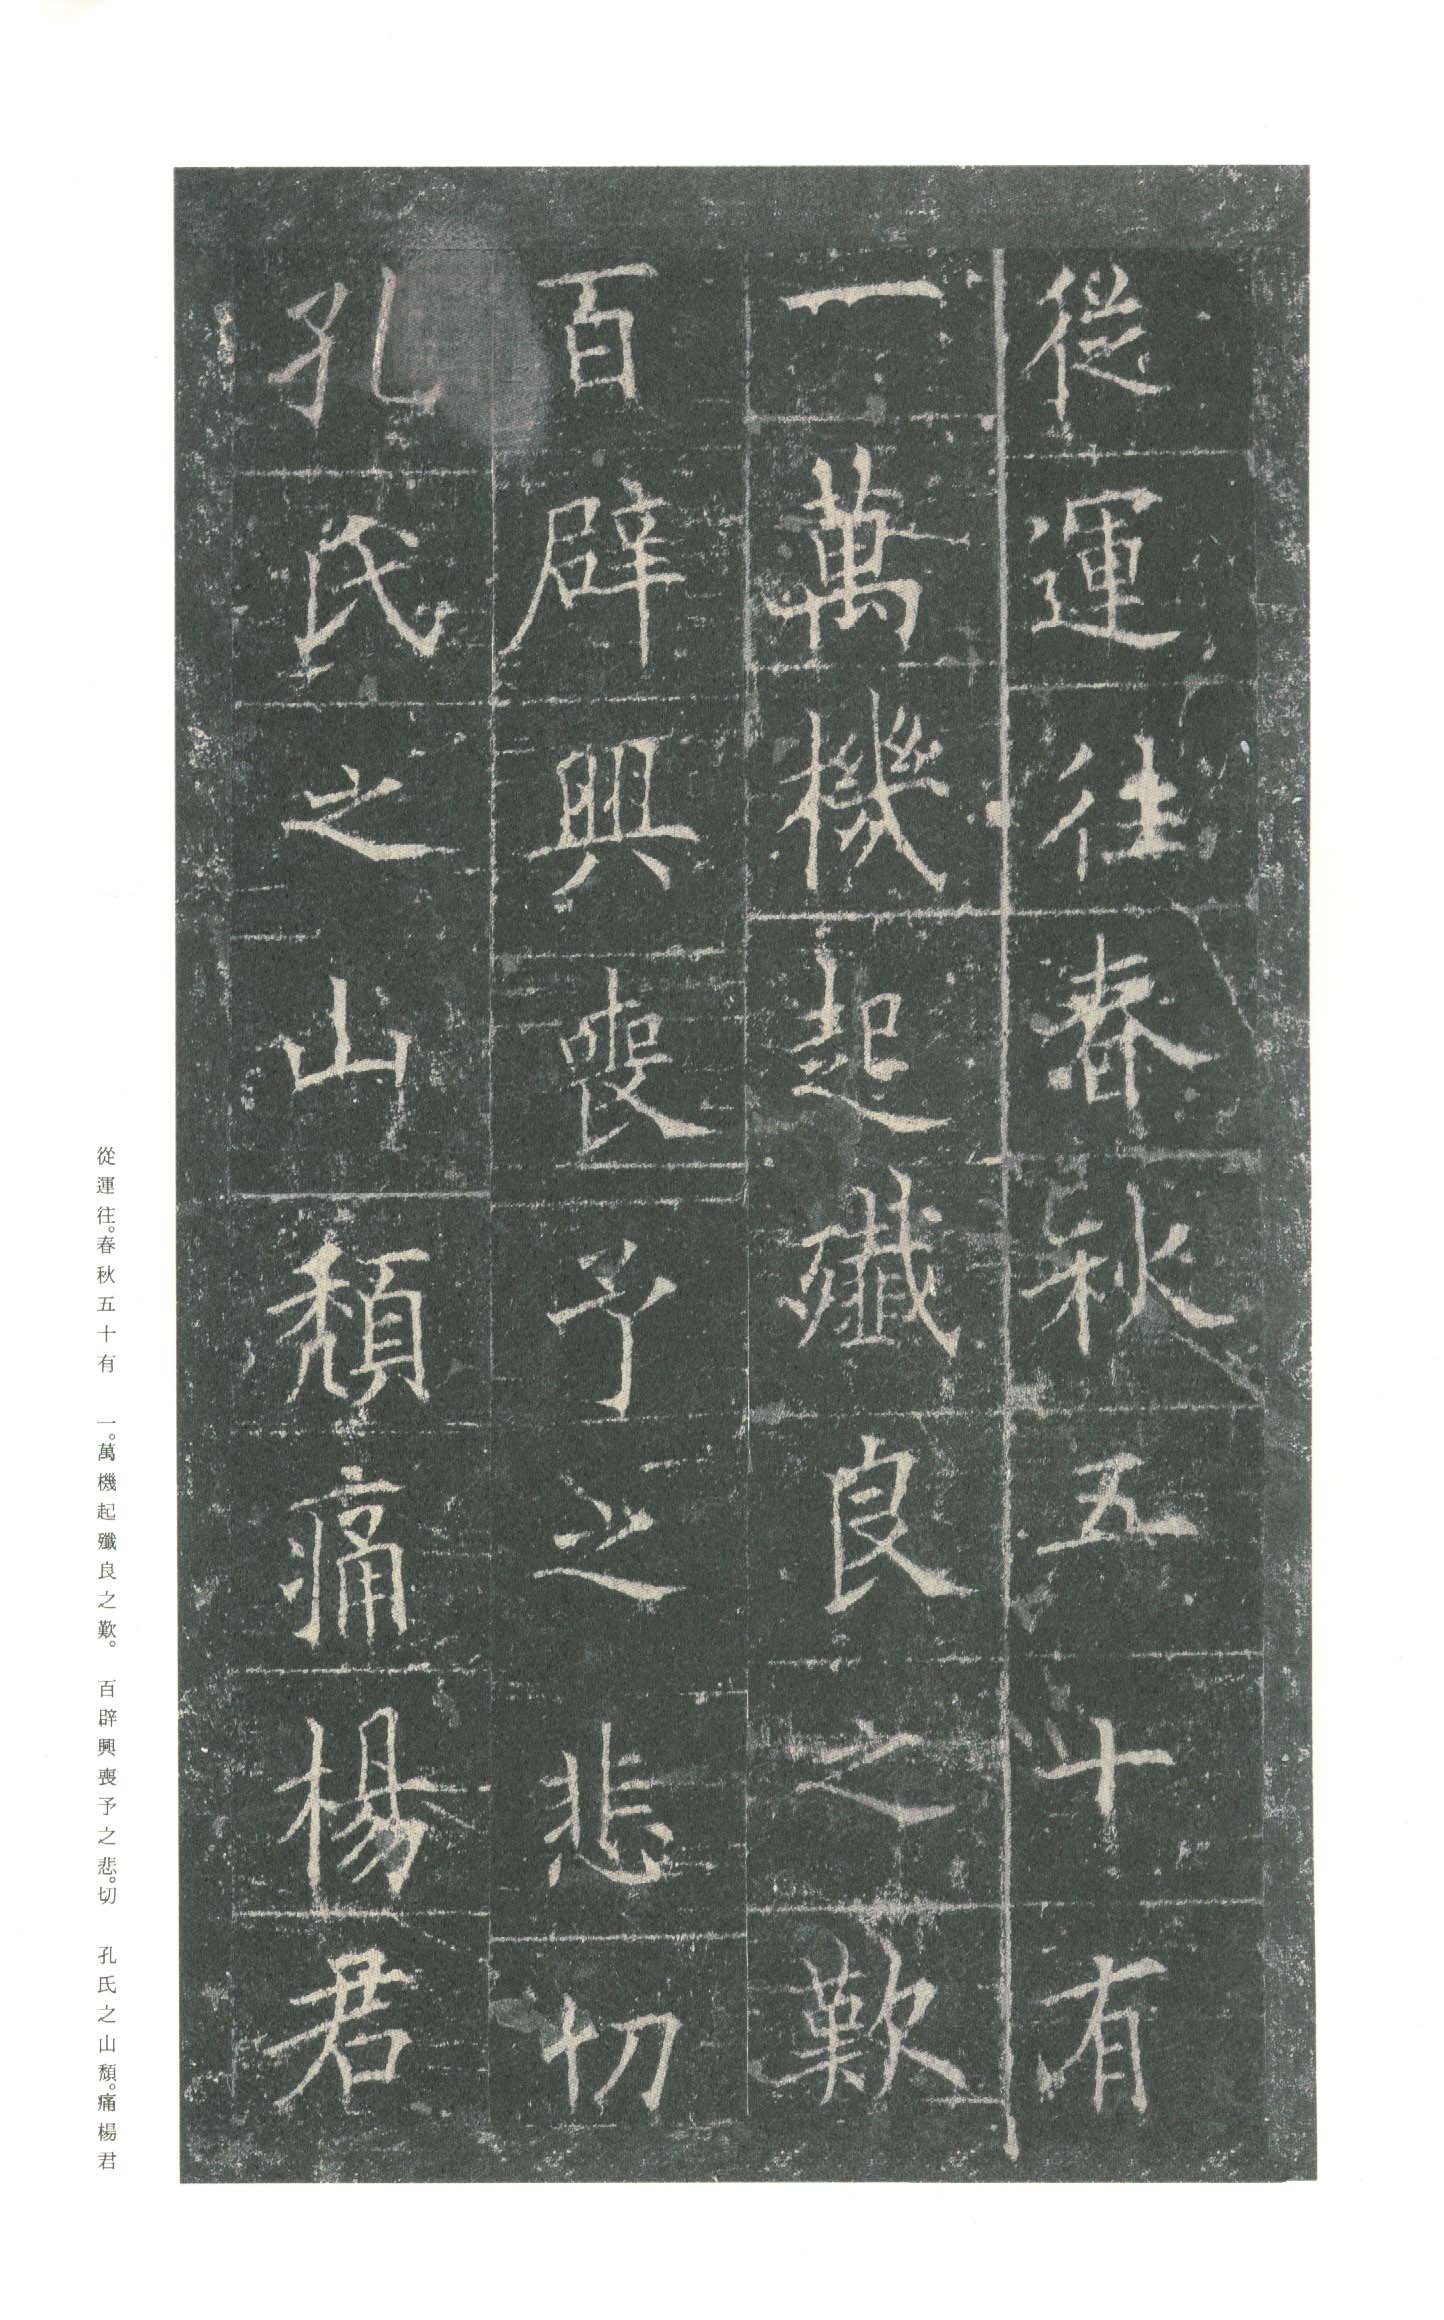 從運往春秋五十有
一萬機起殲良之歎
百辟興喪予之悲切
孔氏之山頹痛楊君
從運往。春秋五十有　一。萬機起殲良之歎。　百辟興喪予之悲。切　孔氏之山頹。痛楊君